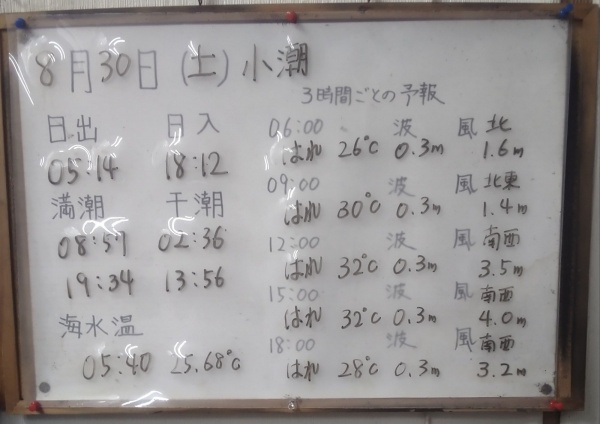 8月30日(土)小潮
3時間ごとの予報
日出 日入
05:14 18:12
満潮 干潮
08:57 02:36
19:34 13:56
海水温
05:40 25.68℃
06:00 波 風 北
はれ 26℃ 0.3m 1.6m
09:00 波 風 北東
はれ 30℃ 0.3m 1.4m
12:00 波 風 南西
はれ 32℃ 0.3m 3.5m
15:00 波 風 南西
はれ 32℃ 0.3m 4.0m
18:00 波 風 南西
はれ 28℃ 0.3m 3.2m